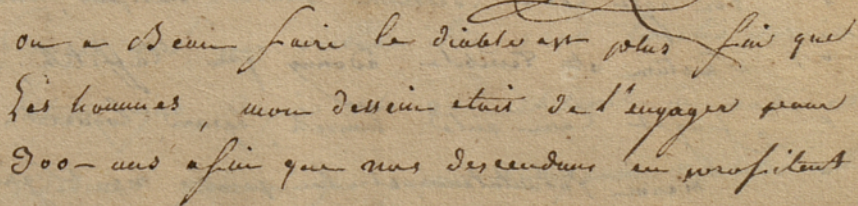 on a Beau faire le diable est plus fin que
Les hommes, mon dessein etait de l'engager pour
300- ans afin que nos descendans en profitent